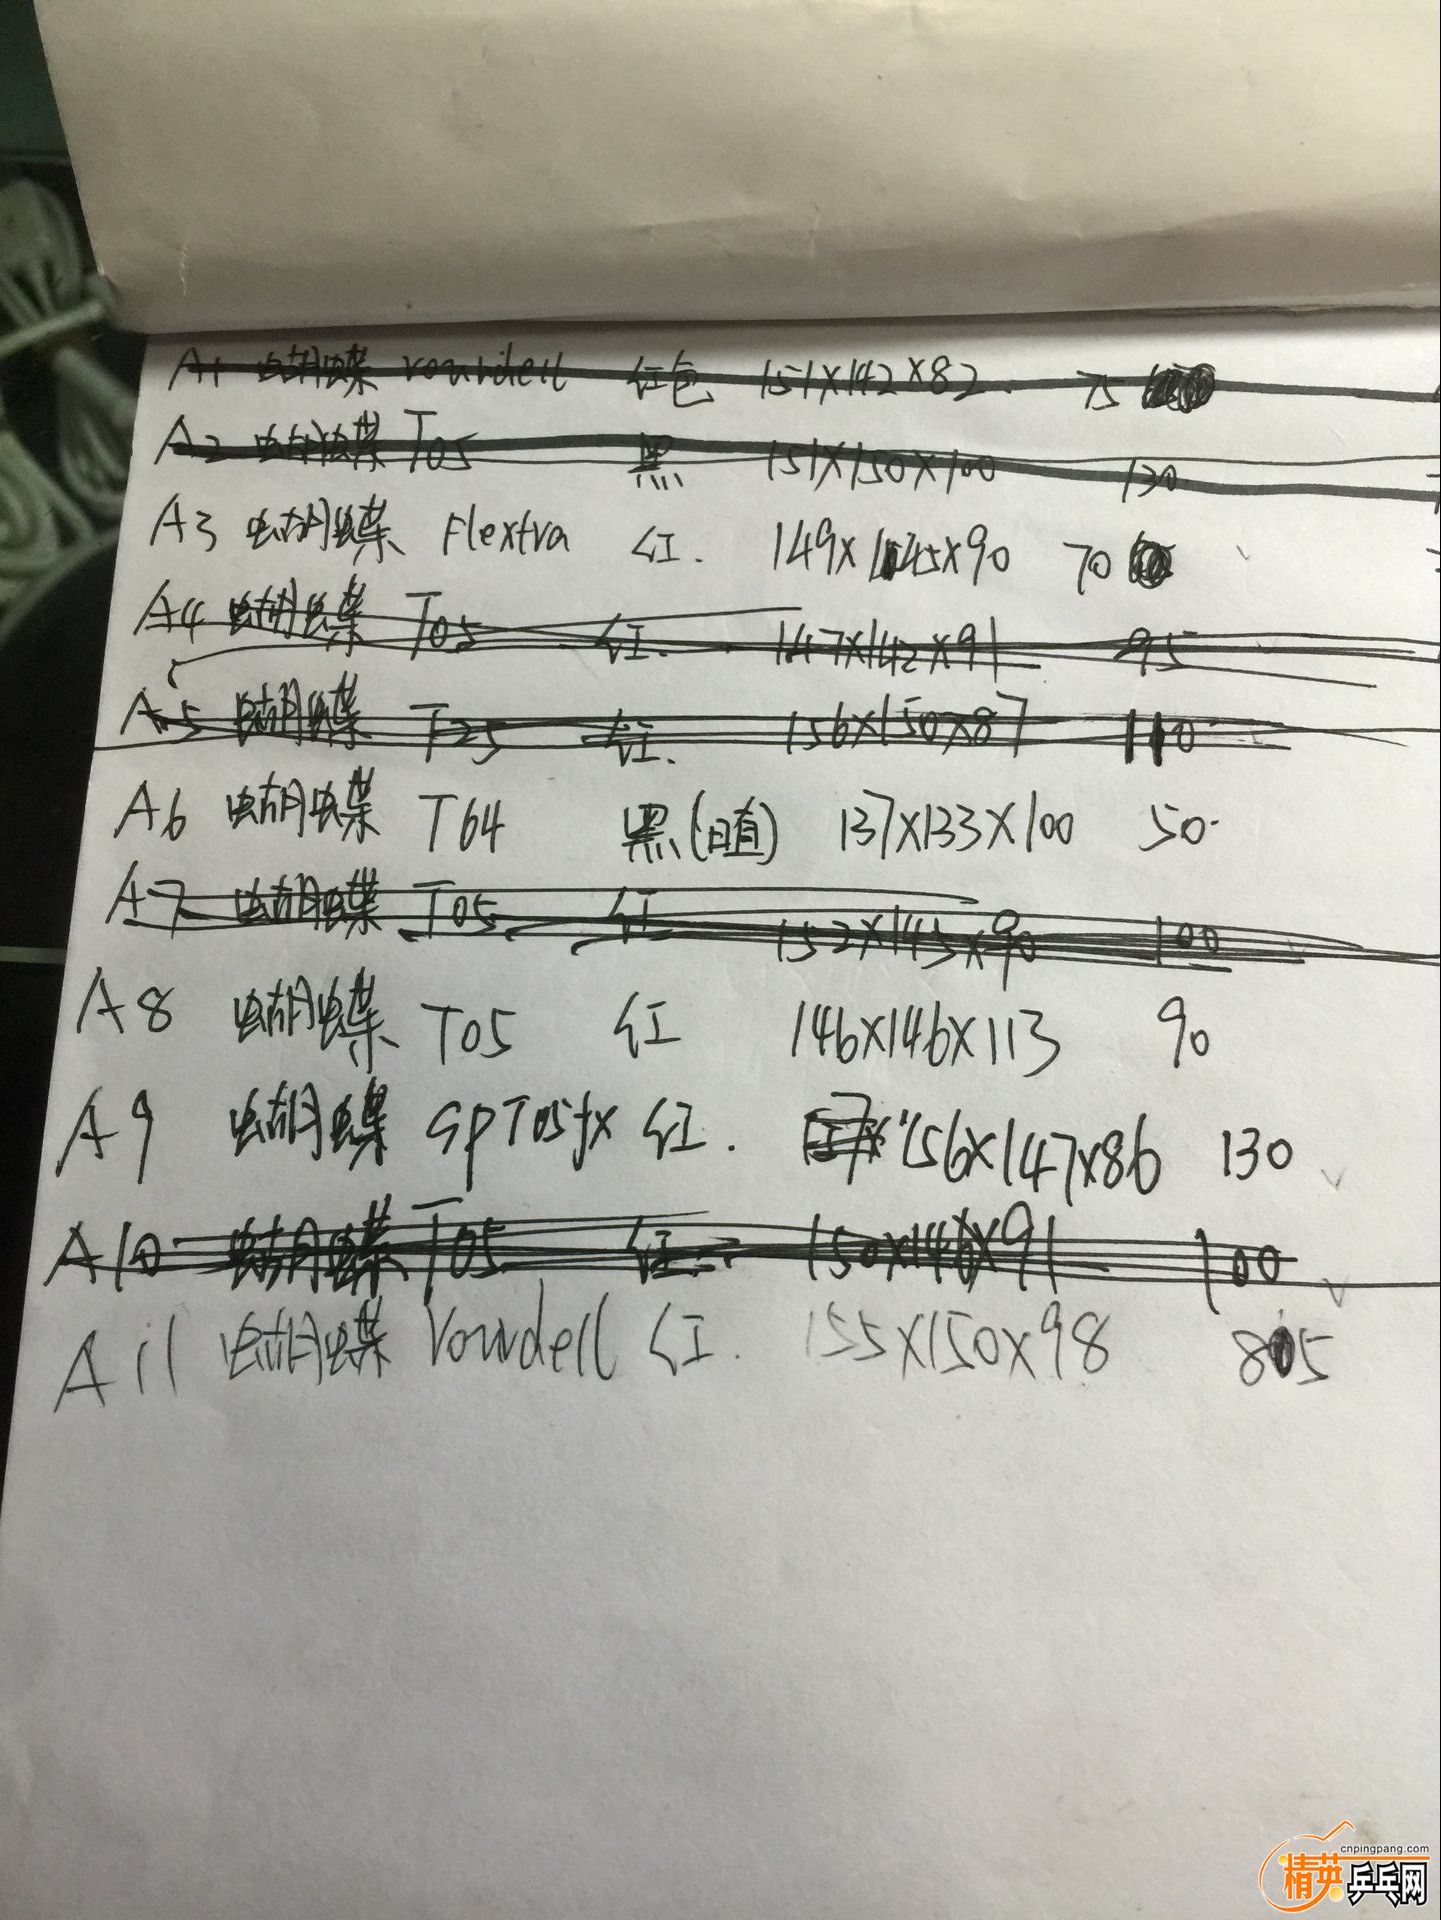 A1 蝴蝶 roundell 红色 151X142X82. 75
A2 蝴蝶 T05 黑 151X150X100 130
A3 蝴蝶 Flextra 红. 149X145X90 70
A4 蝴蝶 T05 红. 147X142X91 95
A5 蝴蝶 T25 红. 156X150X87 110
A6 蝴蝶 T64 黑(日直) 137X133X100 50.
A7 蝴蝶 T05 红 152X145X90 100
A8 蝴蝶 T05 红 146X146X113 90
A9 蝴蝶 GPT05fx 红. 156X147X86 130
A10 蝴蝶 T05 红. 150X146X91 100
A11 蝴蝶 roundell 红. 155X150X98 85
cnpingpang.com
精英乒乓网